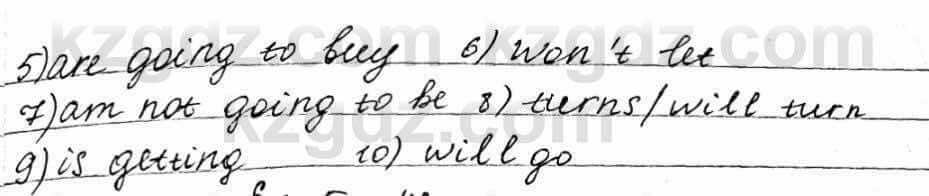 5) are going to buy 6) won't let
7) am not going to be 8) turns/will turn
9) is getting 10) will go